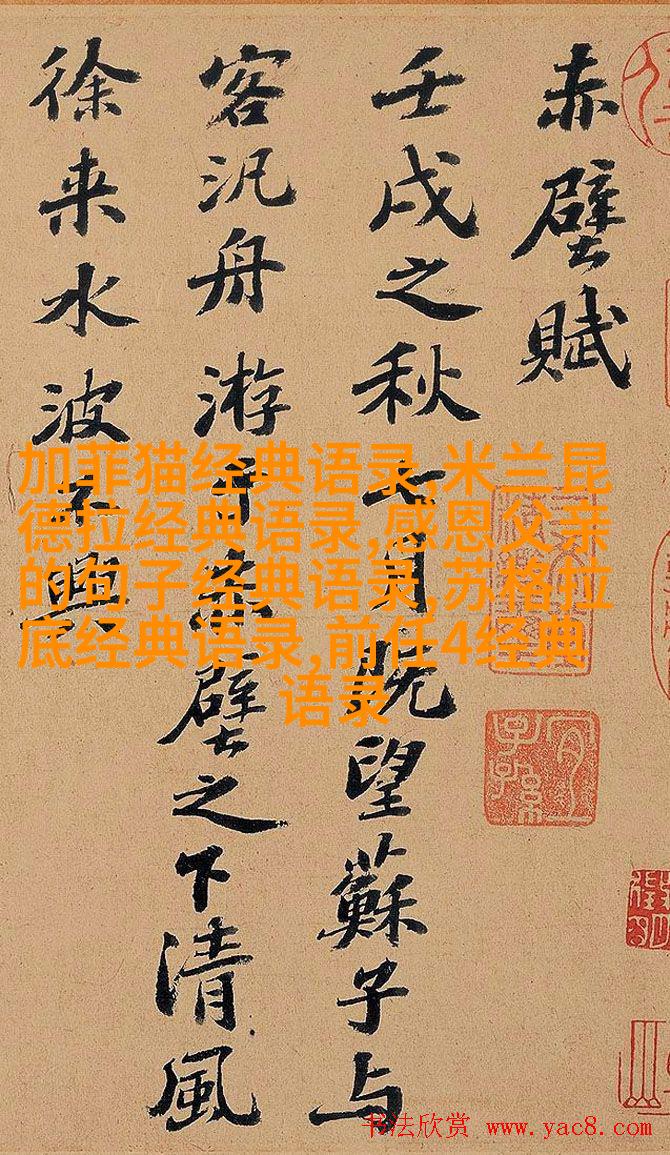 赤壁賦
壬戌之秋七月既望蘇子与
客汎舟游于赤壁之下清風
徐来水波不興
加菲猫经典语录,米兰昆
德拉经典语录,感恩父亲
的句子经典语录,苏格拉
底经典语录,前任4经典
语录
书法欣赏 www.yac8.com